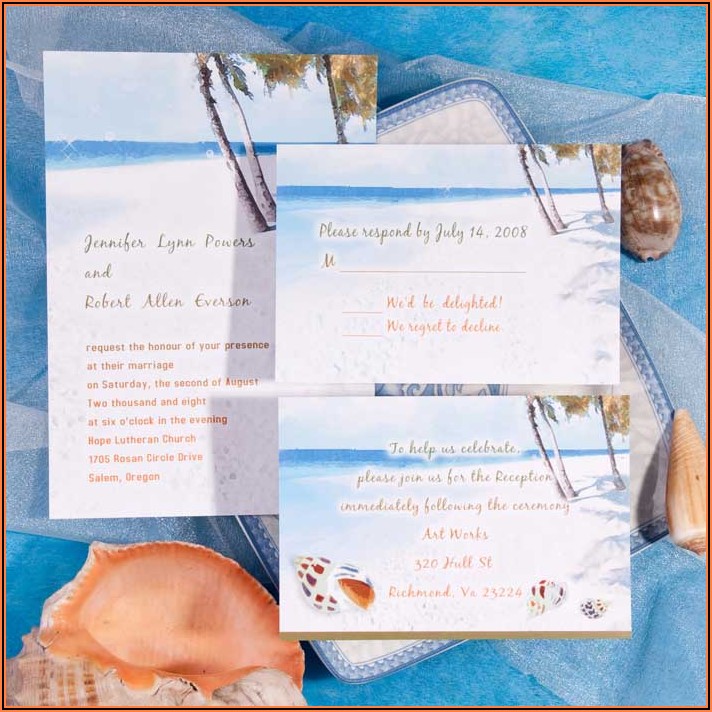 Jennifer Lynn Powers
and
Robert Allen Everson
request the honour of your presence
at their marriage
on Saturday, the second of August
Two thousand and eight
at six o'clock in the evening
Hope Lutheran Church
1705 Rosan Circle Drive
Salem, Oregon
Please respond by July 14, 2008
M
We'd be delighted!
We regret to decline.
To help us celebrate,
please join us for the Reception
immediately following the ceremony
Art Works
320 Hull St
Richmond, Va 23224